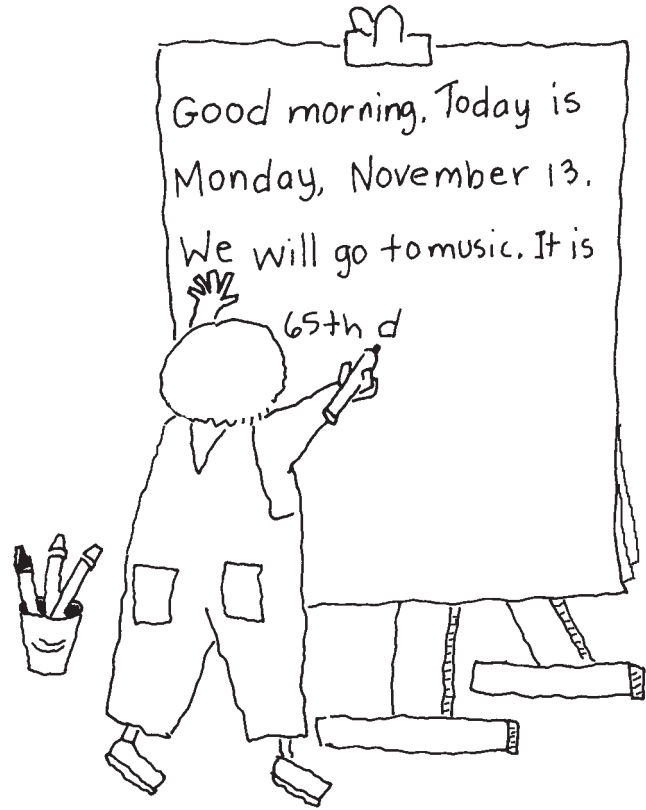 Good morning. Today is
Monday, November 13.
We will go to music. It is
65th d